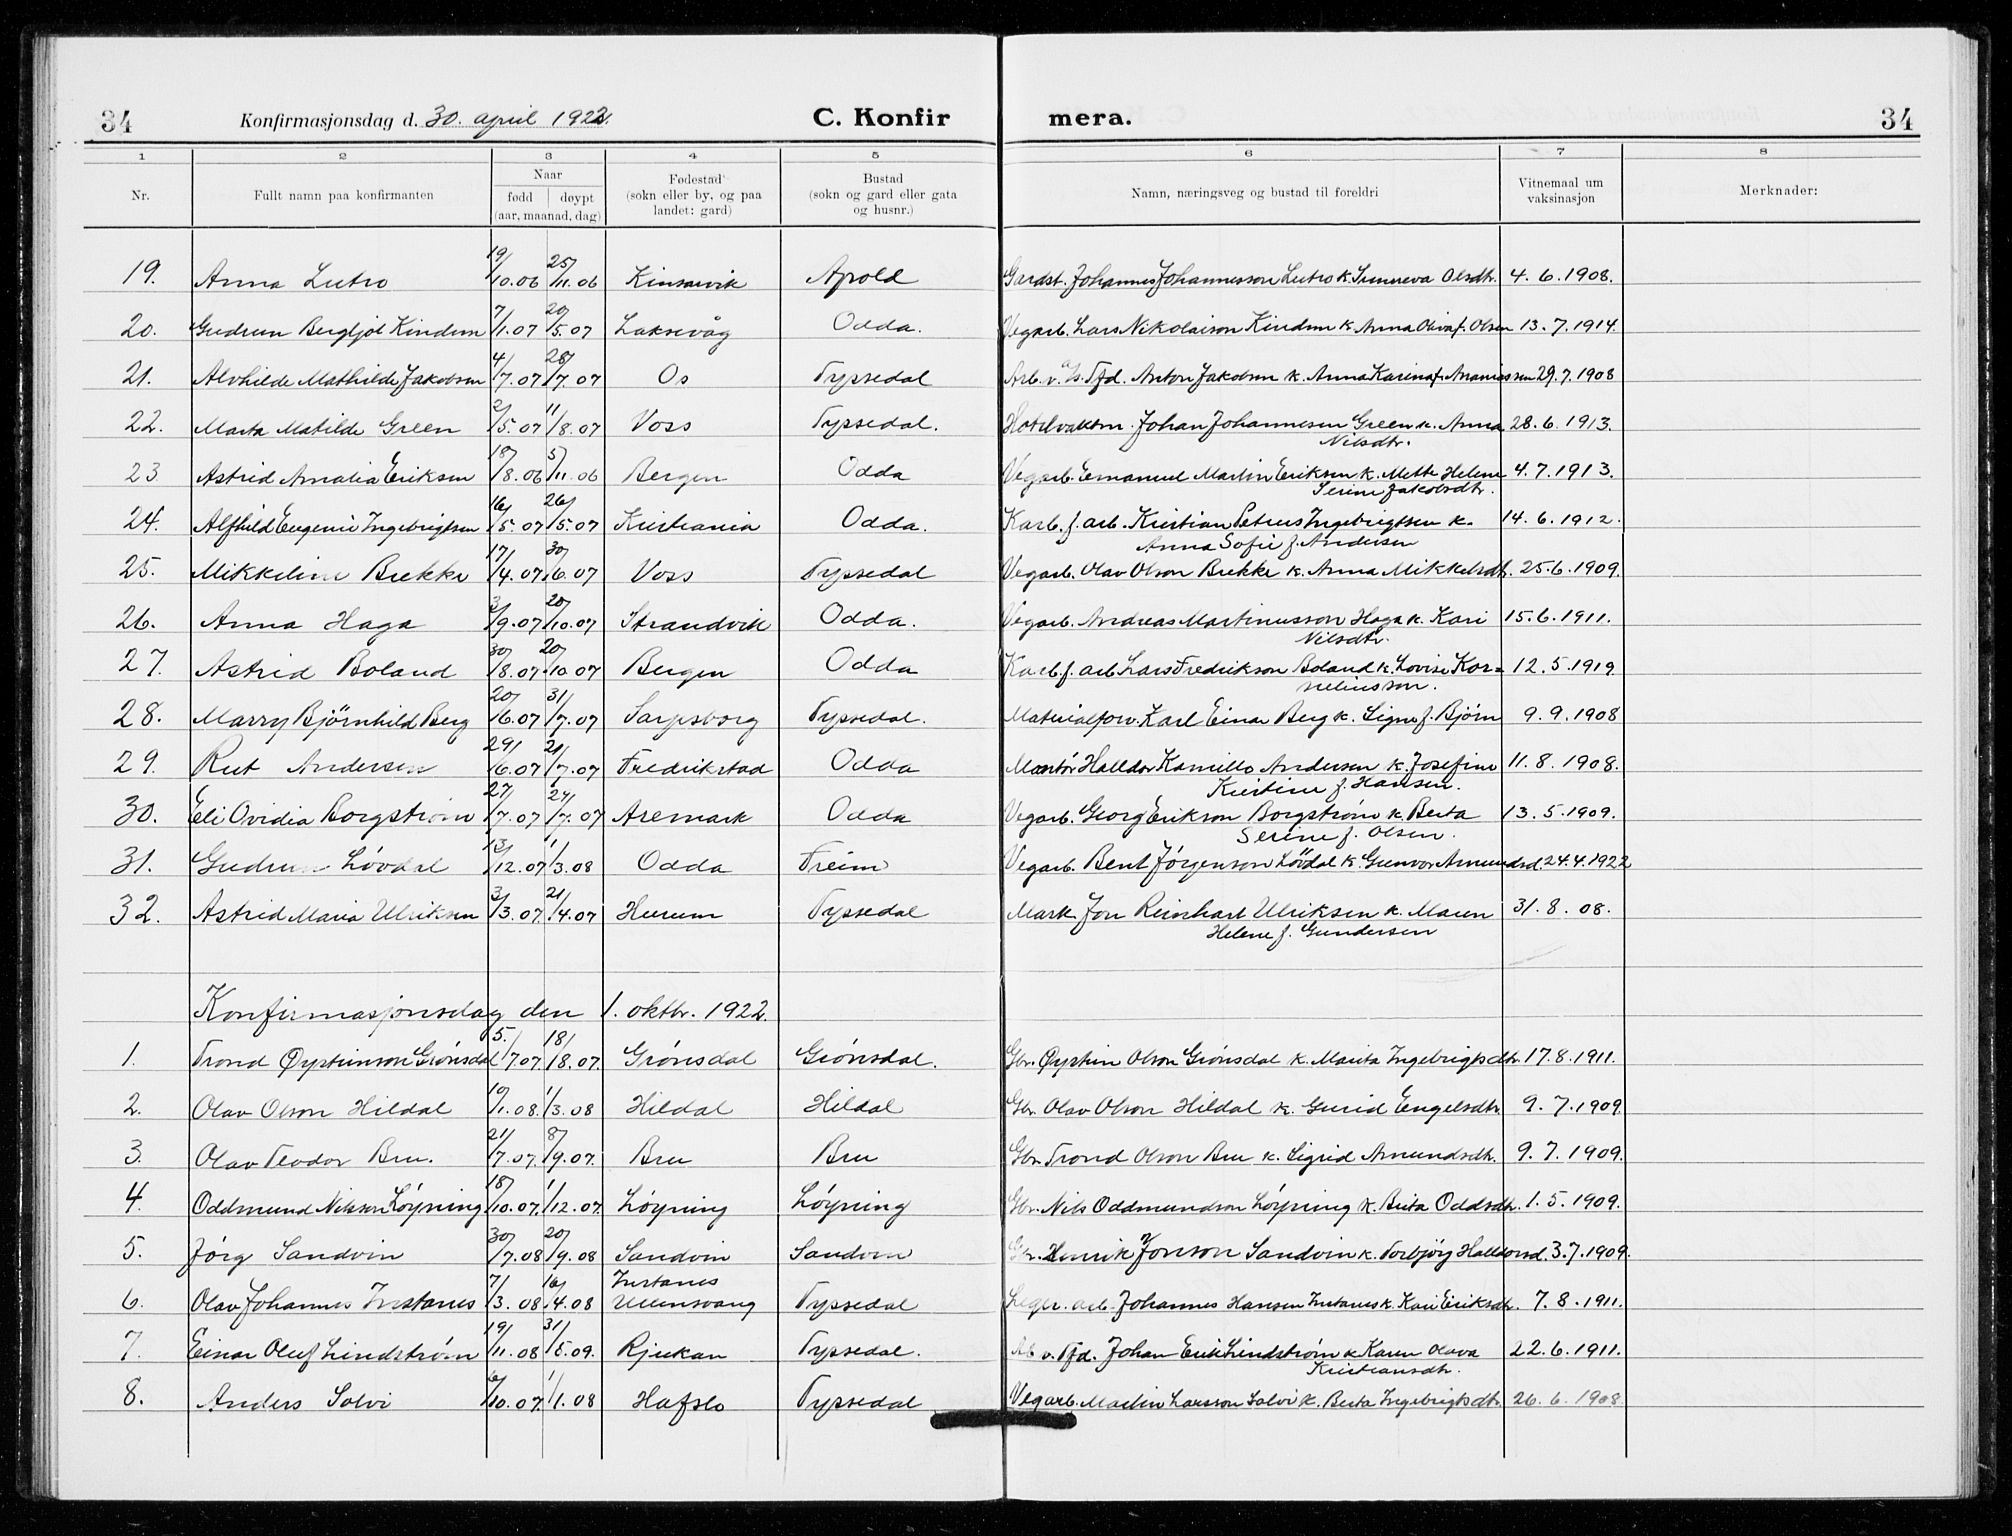 34 Konfirmasjonsdag d. 30. april 1922. C. Konfir mera. 34
1 2 3 4 5 6 7 8
Nr. Fullt namn paa konfirmanten Naar fødd døypt (aar, maanad, dag) Fødestad (sokn eller by, og paa landet: gard) Bustad (sokn og gard eller gata og husnr.) Namn, næringsveg og bustad til foreldri Vitnemaal um vaksinasjon Merknader:
19. Anna Lutro 19/10.06 25/11.06 Kinsarvik Apold Gardst. Johannes Johannesson Lutro k. Sunneva Olsdtr. 4.6.1908.
20. Gudrun Bergljot Kindem 7/1.07 20/5.07 Laksevåg Odda. Vegarb. Lars Nikolaison Kindem k. Anna Oliva f. Olsen 13.7.1914.
21. Alvhilde Mathilde Jakobsen 4/7.07 28/7.07 Os Tyssedal Arb. v. a/s. Tfd. Anton Jakobsen k. Anna Karina f. Ananiassen 29.7.1908
22. Marta Matilde Green 2/5.07 11/8.07 Voss Tyssedal. Hotelvaktm. Johan Johannesen Green k. Anna 28.6.1913.
Nilsdtr.
23 Astrid Amalia Eriksen 18/8.06 5/11.06 Bergen Odda Vegarb. Emanuel Martin Eriksen k. Mette Helene 4.7.1913.
Serine Jakobsdtr.
24. Alfhild Eugenie Ingebrigtsen 16/5.07 26/5.07 Kristiania Odda. Karb. f. arb. Kristian Petrus Ingebrigtsen k. 14.6.1912.
Anna Sofie f. Andersen
25. Mikkeline Brekke 17/4.07 30/6.07 Voss Tyssedal Vegarb. Olav Olson Brekke k. Anna Mikkelsdtr. 25.6.1909.
26. Anna Haga 3/9.07 20/10.07 Strandvik Odda. Vegarb. Andreas Martinusson Haga k. Kari 15.6.1911.
Nilsdtr.
27. Astrid Boland 30/8.07 20/10.07 Bergen Odda Karb. f. arb Lars Fredrikson Boland k. Lovise Kor= 12.5.1919.
neliusson.
28. Marry Björnhild Berg 20/6.07 31/7.07 Sarpsborg Tyssedal. Materialforv. Karl Einar Berg k. Signe f. Björn 9.9.1908
29. Rut Andersen 29/6.07 21/7.07 Fredrikstad Odda Montör Halldor Kamillo Andersen k. Josefine 11.8.1908.
Kristine f. Hansen.
30. Eli Ovidia Borgström 27/7.07 Aremark Odda Vegarb. Georg Erikson Borgstrøm k. Berta 13.5.1909.
Serine f. Olsen.
31. Gudrun Lóvdal 13/12.07 1/3.08 Odda Freim Vegarb. Bent Jørgenson Lövdal k. Gunvor Amundsd. 24.4.1922
32. Astrid Maria Ulriksen 3/3.07. 21/4.07 Hurum Tyssedal Mark. Jon Reinhart Ulriksen k. Maren 31.8.08.
Helene f. Gundersen
Konfirmasjonsdag den 1. oktbr. 1922.
1. Trond Øysteinson Grónsdal 5./7.07. 18/8.07. Grónsdal Grónsdal. Gbr. Øystein Olson Grónsdal k. Marita Ingebrigtsdtr. 17.8.1911.
2. Olav Olson Hildal 10/1.08. 1/3.08 Hildal Hildal Gbr. Olav Olson Hildal k. Gurid Engelsdtr. 9.7.1909.
3. Olav Teodor Bru. 21/7.07. 8/9.07. Bru Bru Gbr. Trond Olson Bru k. Sigrid Amundsdtr. 9.7.1909.
4. Oddmund Nilsson Lóyning 18/10.07. 1/12.07. Lóyning Lóyning Gbr. Nils Oddmundson Lóyning k. Brita Oddsdtr. 1.5.1909.
5. Jórg Sandvin 30/7.08 20/9.08 Sandvin Sandvin Gbr. Henrik Jonson Sandvin k. Torbjörg Halldorsd. 3.7.1909.
6. Olav Johannes Instanes 7/3.08 16/4.08 Instanes Ullensvang Tyssedal Johannes Hansen Instanes k. Kari Eriksdtr. 7.8.1911.
7. Einar Oluf Lindstrøm 19/11.08 31/5.09. Rjukan Tyssedal. Ab v. Tfd. Johan Erik Lindstrøm k. Karen Olava 22.6.1911.
Kristiansdtr.
8. Anders Solvi 6/10.07. 1/1.08 Hafslo Tyssedal Vegarb. Martin Larsson Solvi k. Berta Ingebrigtsdtr. 26.6.1908.